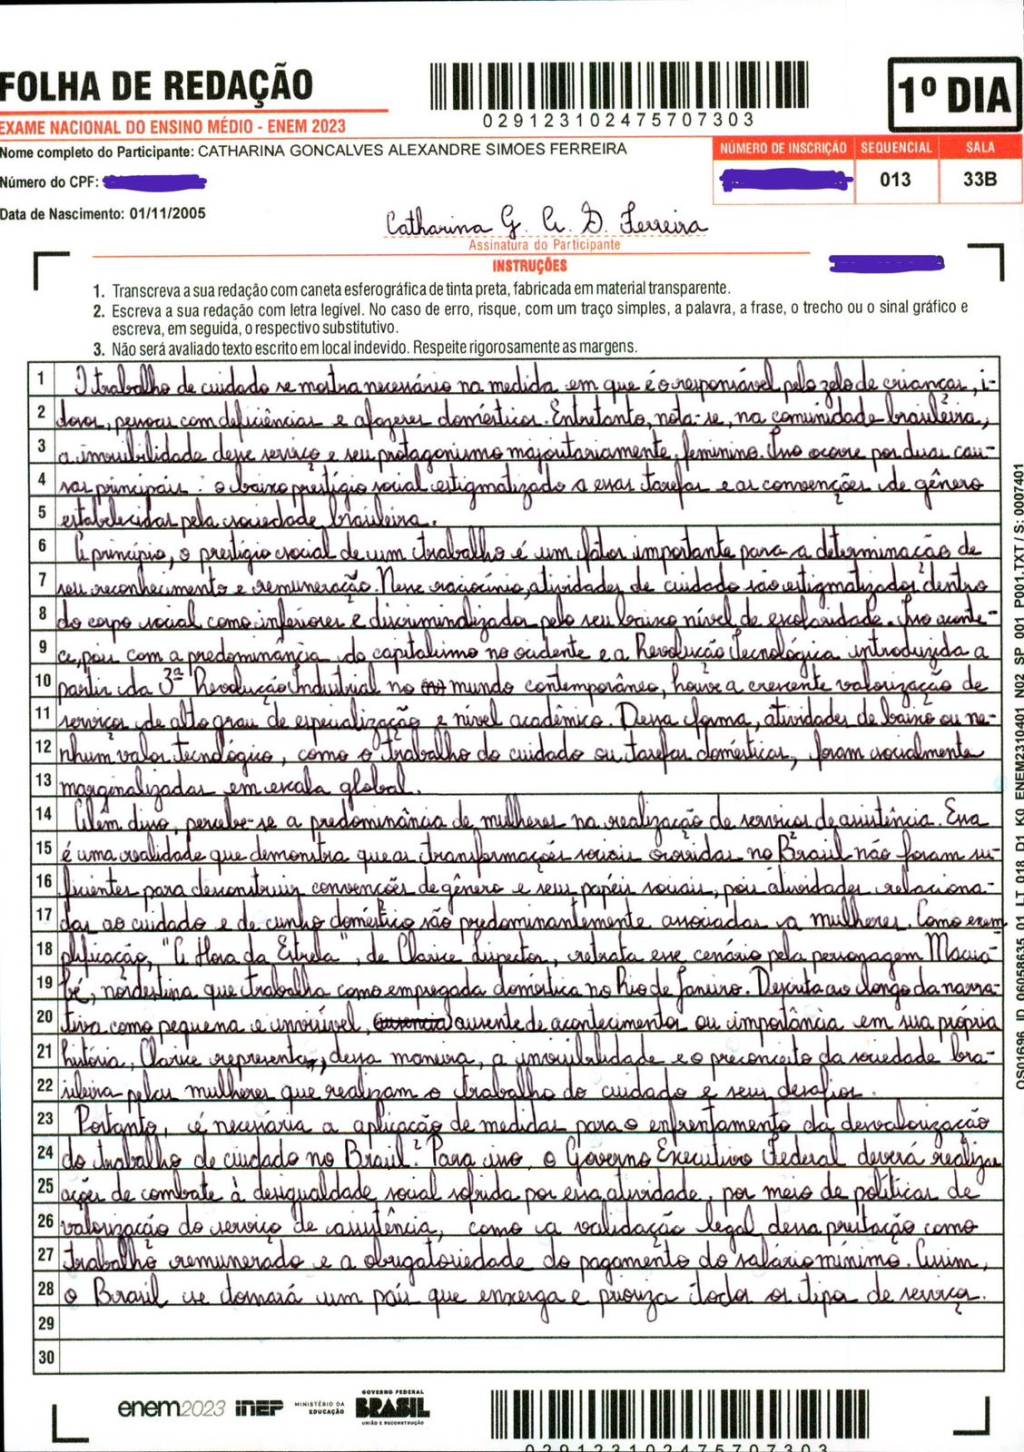 FOLHA DE REDAÇÃO
EXAME NACIONAL DO ENSINO MÉDIO - ENEM 2023
029123102475707303
1º DIA
Nome completo do Participante: CATHARINA GONCALVES ALEXANDRE SIMOES FERREIRA
Número do CPF:
Data de Nascimento: 01/11/2005
NÚMERO DE INSCRIÇÃO SEQUENCIAL SALA
013 33B
Catharina G. A. S. Ferreira
Assinatura do Participante
INSTRUÇÕES
1. Transcreva a sua redação com caneta esferográfica de tinta preta, fabricada em material transparente.
2. Escreva a sua redação com letra legível. No caso de erro, risque, com um traço simples, a palavra, a frase, o trecho ou o sinal gráfico e
escreva, em seguida, o respectivo substitutivo.
3. Não será avaliado texto escrito em local indevido. Respeite rigorosamente as margens.
1 O trabalho de cuidado se mostra necessário na medida em que é o responsável pelo zelo de crianças, i-
2 dosos, pessoas com deficiências e afazeres domésticos. Entretanto, nota-se, na comunidade brasileira,
3 a invisibilidade desse serviço e seu protagonismo majoritariamente feminino. Isso ocorre por duas cau-
4 sas principais: o baixo prestígio social estigmatizado a essas tarefas e as convenções de gênero
5 estabelecidas pela sociedade brasileira.
6 A princípio, o prestígio social de um trabalho é um fator importante para a determinação de
7 seu reconhecimento e remuneração. Nesse raciocínio, atividades de cuidado são estigmatizadas dentro
8 do corpo social como inferiores e discriminalizadas pelo seu baixo nível de escolaridade. Isso aconte-
9 ce, pois com a predominância do capitalismo no ocidente e a Revolução Tecnológica introduzida a
10 partir da 3ª Revolução Industrial no mundo contemporâneo, houve a crescente valorização de
11 serviços de alto grau de especialização e nível acadêmico. Dessa forma, atividades de baixo ou ne-
12 nhum valor tecnológico, como o trabalho do cuidado ou tarefas domésticas, foram socialmente
13 marginalizadas em escala global.
14 Além disso, percebe-se a predominância de mulheres na realização de serviços de assistência. Essa
15 é uma realidade que demonstra que as transformações sociais ocorridas no Brasil não foram su-
16 ficientes para desconstruir convenções de gênero e seus papéis sociais, pois atividades relaciona-
17 das ao cuidado e de cunho doméstico são predominantemente associadas a mulheres. Como exem
18 plificação, "A Hora da Estrela", de Clarice Lispector, retrata esse cenário pela personagem Macabé-
19 bé, nordestina que trabalha como empregada doméstica no Rio de Janeiro. Descrita ao longo da narra-
20 tiva como pequena e invisível, ausente de acontecimentos ou importância em sua própria
21 história, Clarice representa, dessa maneira, a invisibilidade e o preconceito da sociedade bra-
22 sileira pelas mulheres que realizam o trabalho do cuidado e seus desafios.
23 Portanto, é necessária a aplicação de medidas para o enfrentamento da desvalorização
24 do trabalho de cuidado no Brasil. Para isso, o Governo Executivo Federal deverá realizar
25 ações de combate à desigualdade social sofrida por essa atividade, por meio de políticas de
26 valorização do serviço de assistência, como a validação legal dessa prestação como
27 trabalho remunerado e a obrigatoriedade do pagamento do salário mínimo. Assim,
28 o Brasil se tornará um país que enxerga e prioriza todos os tipos de serviços.
29
30
OS01696 ID 06058635 01 LT 018 D1 K0 ENEM2310401 N02 SP 001 P001.TXT / S: 0007401
enem2023 inep MINISTÉRIO DA EDUCAÇÃO GOVERNO FEDERAL BRASIL UNIÃO E RECONSTRUÇÃO
029123102475707303